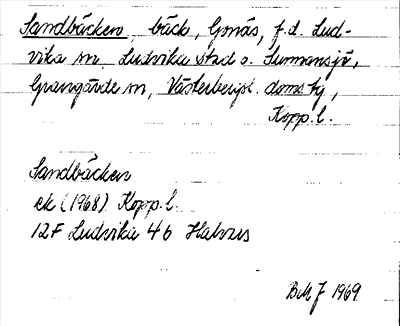 Sandbäcken, bäck, Gonäs, f.d. Lud-
vika sn, Ludvika stad o. Sunnansjö,
Grangärde sn, Västerbergsl. doms hg,
Kopp. l.
Sandbäcken
ek (1968) Kopp. l.
12F Ludvika 4b Halvars
BMJ 1969